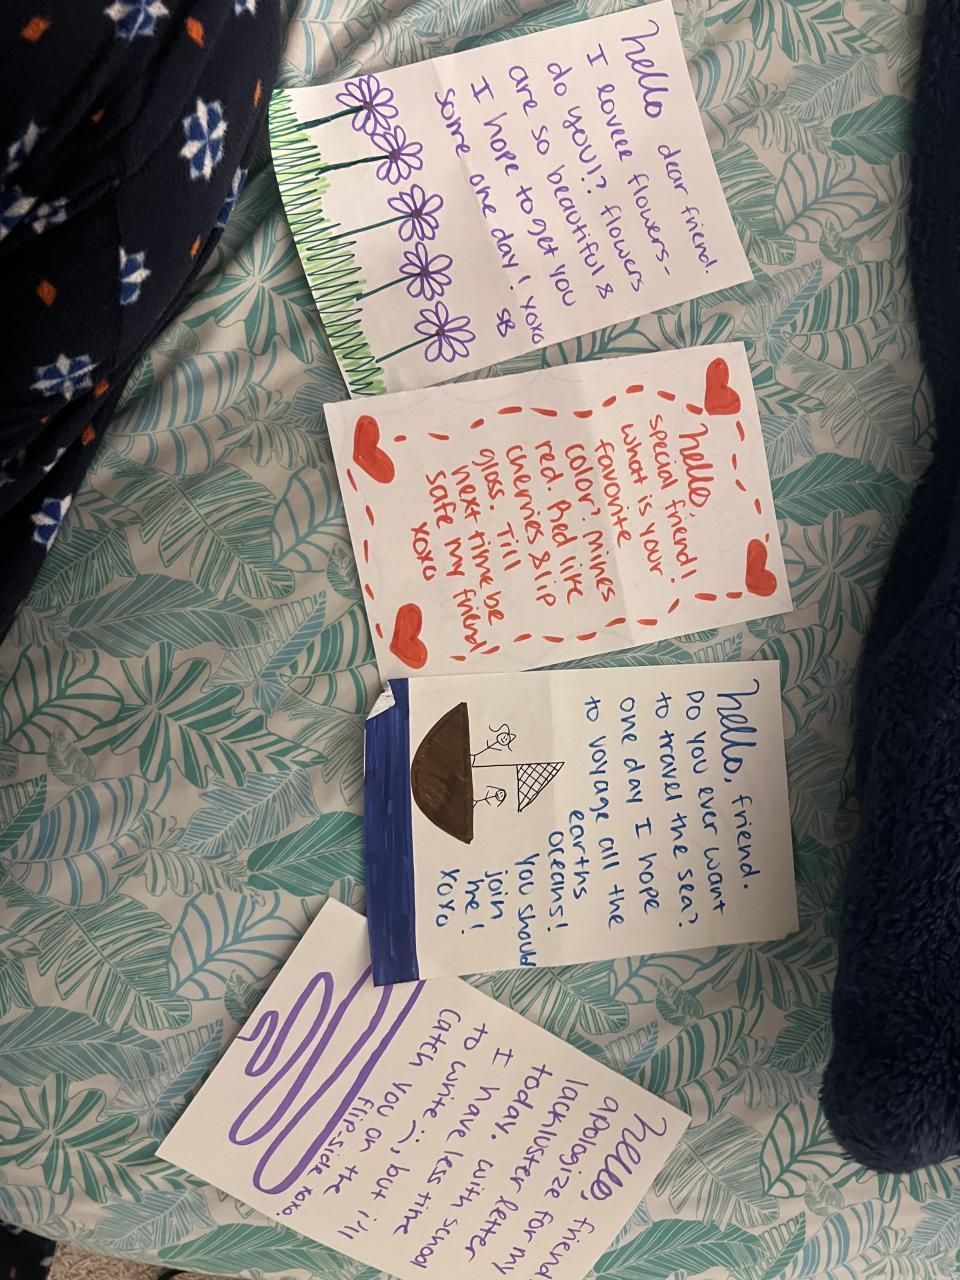 hello dear friend.
I loveee flowers-
do you!? flowers
are so beautiful &
I hope to get you
some one day! xoxo
SB
hello,
special friend!
what is your
favorite
color? Mines
red. Red like
cherries & lip
gloss. Till
next time be
safe my friend!
xoxo
hello, friend.
Do you ever want
to travel the sea?
one day I hope
to voyage all the
earths
oceans!
you should
join
me!
xoxo
hello, friend
apologize for my
lackluster letter
today. with
I have less time
to write :), but i'll
catch you on the
flip side xoxo!